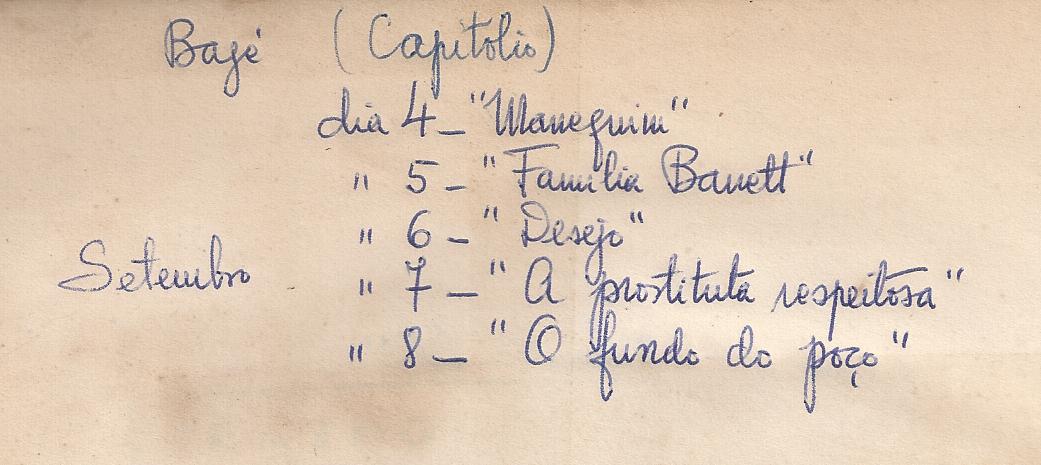 Bagé (Capitolio)
dia 4 - "Manequim"
" 5 - "Familia Barrett"
" 6 - "Desejo"
Setembro " 7 - "A prostituta respeitosa"
" 8 - "O fundo do poço"